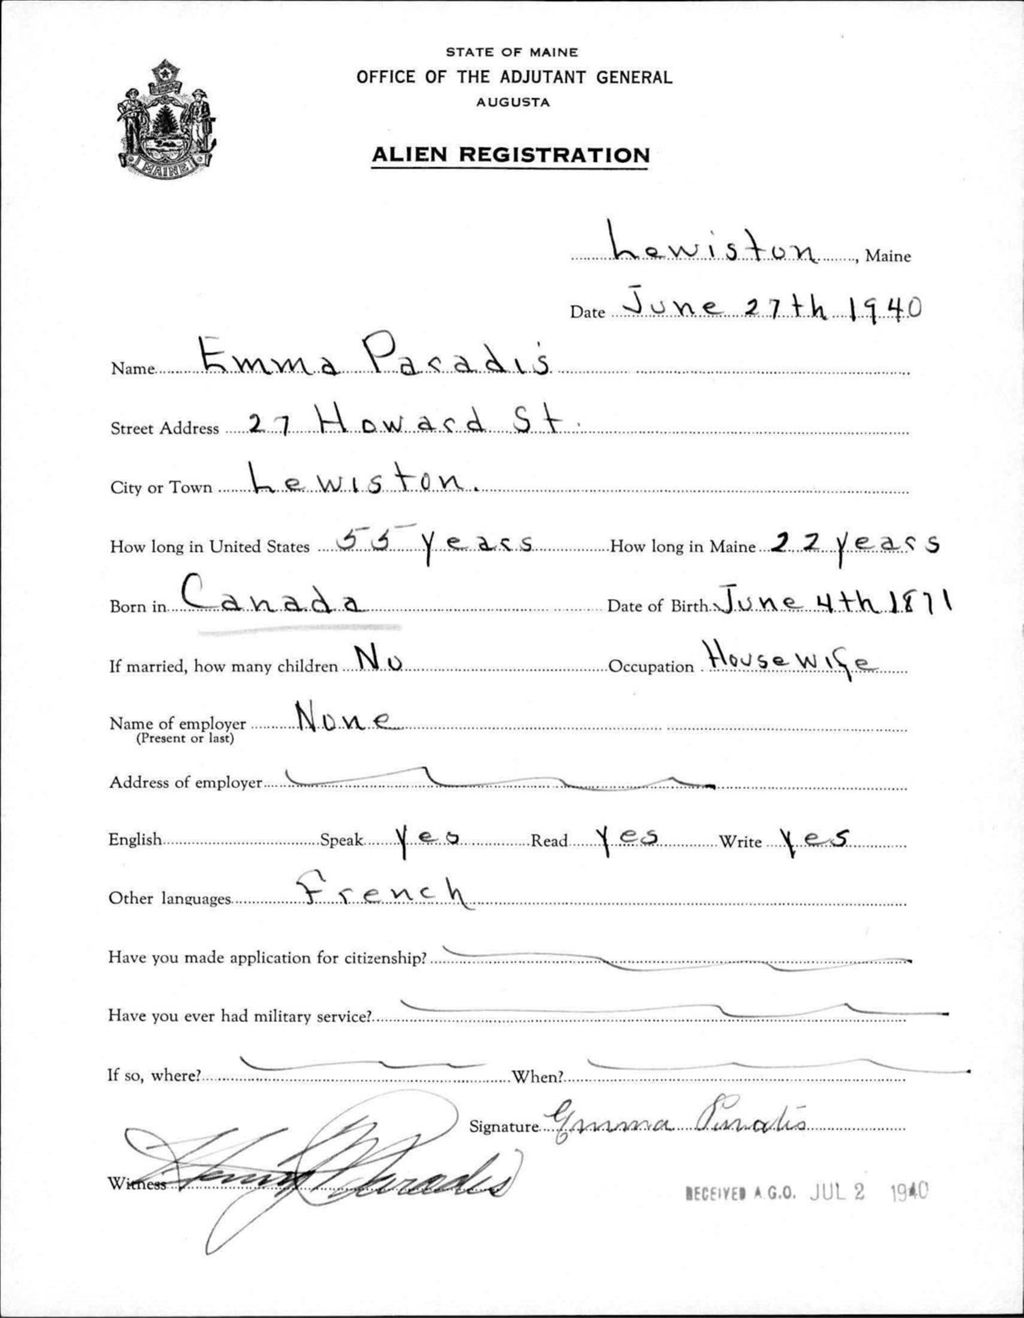 STATE OF MAINE
OFFICE OF THE ADJUTANT GENERAL
AUGUSTA
ALIEN REGISTRATION
MAINE
Lewiston, Maine
Date June 27th 1940
Name Emma Paradis
Street Address 27 Howard St.
City or Town Lewiston.
How long in United States 55 years How long in Maine 22 years
Born in Canada Date of Birth June 4th 1871
If married, how many children No Occupation Housewife
Name of employer None
(Present or last)
Address of employer
English Speak Yes Read Yes Write Yes
Other languages French
Have you made application for citizenship?
Have you ever had military service?
If so, where? When?
Signature Emma Paradis
Witness Henry Paradis
RECEIVED A.G.O. JUL 2 1940